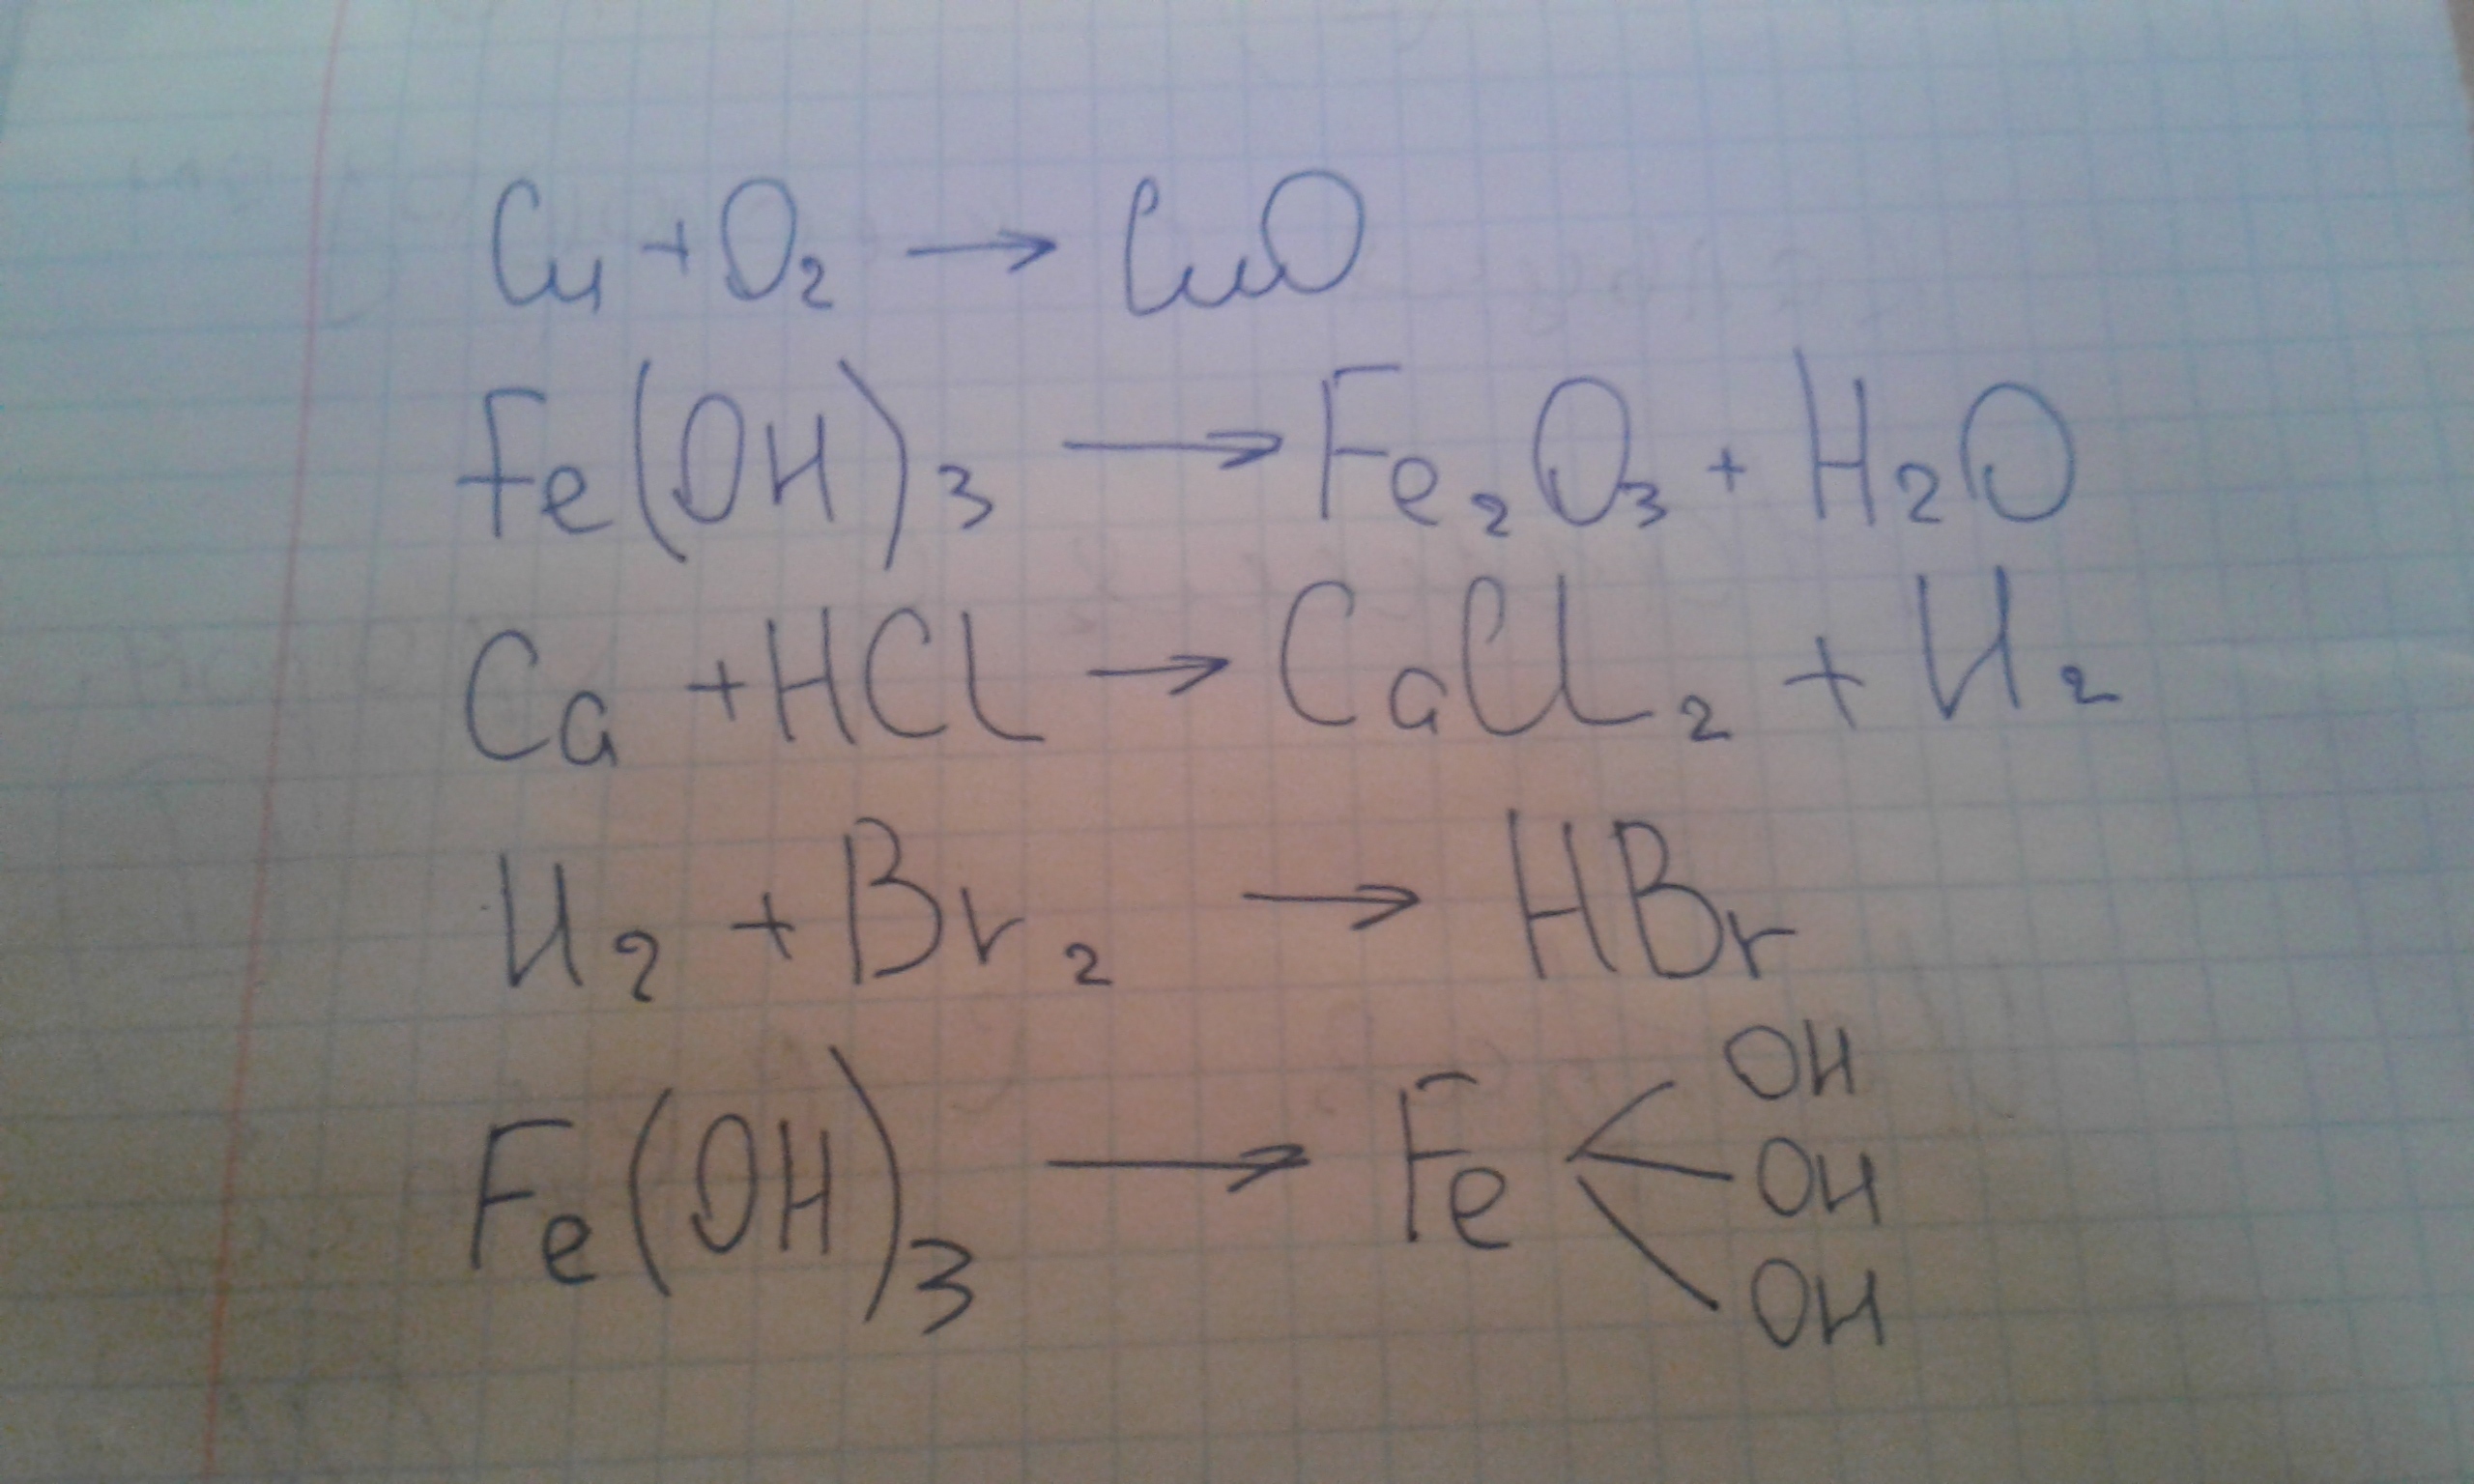 Cu + O₂ → CuO
Fe(OH)₃ → Fe₂O₃ + H₂O
Ca + HCl → CaCl₂ + H₂
H₂ + Br₂ → HBr
OH
Fe(OH)₃ → Fe OH
OH